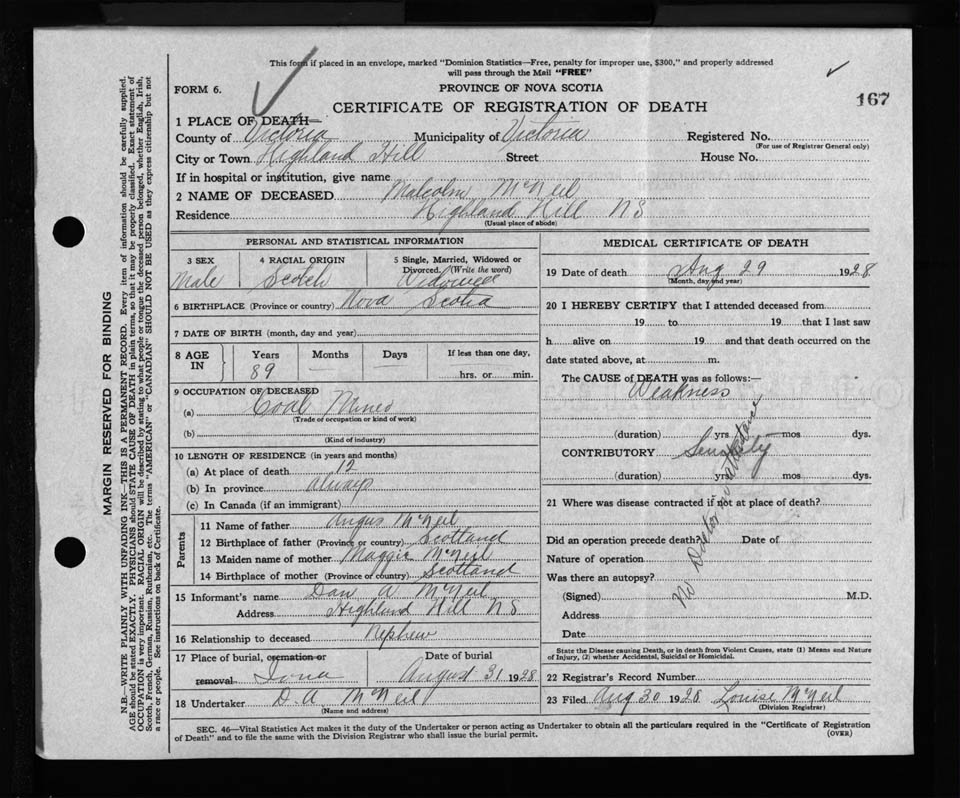 This form if placed in an envelope, marked "Dominion Statistics—Free, penalty for improper use, $300," and properly addressed
will pass through the Mail "FREE"
FORM 6.
PROVINCE OF NOVA SCOTIA
167
CERTIFICATE OF REGISTRATION OF DEATH
1 PLACE OF DEATH—
County of Victoria Municipality of Victoria Registered No.
(For use of Registrar General only)
City or Town Highland Hill Street House No.
If in hospital or institution, give name
2 NAME OF DECEASED Malcolm McNeil
Residence Highland Hill NS
(Usual place of abode)
PERSONAL AND STATISTICAL INFORMATION
3 SEX 4 RACIAL ORIGIN 5 Single, Married, Widowed or
Divorced. (Write the word)
Male Scotch Widowed
6 BIRTHPLACE (Province or country) Nova Scotia
7 DATE OF BIRTH (month, day and year)
8 AGE IN Years Months Days If less than one day,
89 — — hrs. or min.
9 OCCUPATION OF DECEASED
(a) Coal Miner
(Trade of occupation or kind of work)
(b)
(Kind of industry)
10 LENGTH OF RESIDENCE (in years and months)
(a) At place of death 12
(b) In province always
(c) In Canada (if an immigrant)
Parents
11 Name of father Angus McNeil
12 Birthplace of father (Province or country) Scotland
13 Maiden name of mother Maggie McNeil
14 Birthplace of mother (Province or country) Scotland
15 Informant's name Dan A McNeil
Address Highland Hill NS
16 Relationship to deceased Nephew
17 Place of burial, cremation or Date of burial
removal Iona August 31 1928
18 Undertaker D. A McNeil
(Name and address)
MEDICAL CERTIFICATE OF DEATH
19 Date of death Aug 29 1928
(Month, day and year)
20 I HEREBY CERTIFY that I attended deceased from
19 to 19 that I last saw
h alive on 19 and that death occurred on the
date stated above, at m.
The CAUSE of DEATH was as follows:—
Weakness
(duration) yrs mos dys.
CONTRIBUTORY Senility
(duration) yrs mos dys.
21 Where was disease contracted if not at place of death?
Did an operation precede death? Date of
Nature of operation
Was there an autopsy?
(Signed) M.D.
Address
Date
No Doctor in attendance
State the Disease causing Death, or in death from Violent Causes, state (1) Means and Nature
of Injury, (2) whether Accidental, Suicidal or Homicidal.
22 Registrar's Record Number
23 Filed Aug 30 1928 Louise McNeil
(Division Registrar)
SEC. 46—Vital Statistics Act makes it the duty of the Undertaker or person acting as Undertaker to obtain all the particulars required in the "Certificate of Registration
of Death" and to file the same with the Division Registrar who shall issue the burial permit.
(OVER)
MARGIN RESERVED FOR BINDING
N.B.—WRITE PLAINLY WITH UNFADING INK—THIS IS A PERMANENT RECORD. Every item of information should be carefully supplied.
AGE should be stated EXACTLY. PHYSICIANS should STATE CAUSE OF DEATH in plain terms, so that it may be properly classified. Exact statement of
OCCUPATION is very important. RACIAL ORIGIN will be described by stating to what people or tongue the deceased person belonged, whether English, Irish,
Scotch, French, German, Russian, Ruthenian, etc. The terms "AMERICAN" or "CANADIAN" SHOULD NOT BE USED as they express citizenship but not
a race or people. See instructions on back of Certificate.